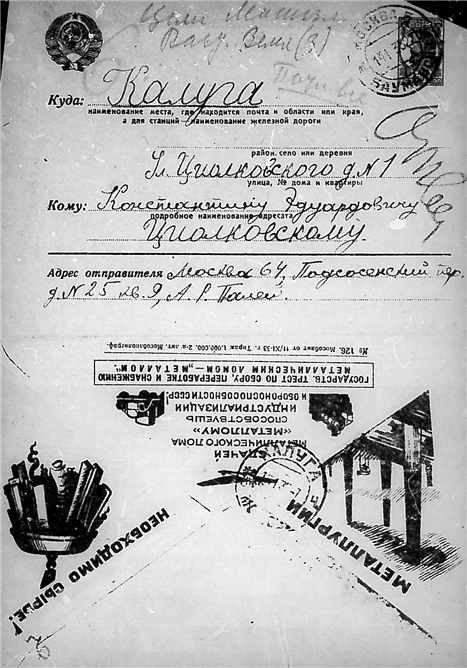 Цели
Почтов
МОСКВА
Куда: Калуга
наименование места, где находится почта и области или края,
а для станций наименование железной дороги
район, село или деревня
Ул. Циолковского д. N 1
улица, № дома и квартиры
Кому: Константину Эдуардовичу
подробное наименование адресата
Циолковскому.
Адрес отправителя Москва 64, Подсосенский пер.
д. N 25 кв. 9, А. Р. Палей.
№ 126. Мособлит от 11/XI-33 г. Тираж 1.000.000. 2-я лит. Мособлполиграф.
ГОСУДАРСТВ. ТРЕСТ ПО СБОРУ, ПЕРЕРАБОТКЕ И СНАБЖЕНИЮ
МЕТАЛЛИЧЕСКИМ ЛОМОМ — „МЕТАЛЛОМ“.
СДАЧЕЙ
МЕТАЛЛИЧЕСКОГО ЛОМА
«МЕТАЛЛОМУ»
СПОСОБСТВУЕШЬ
ИНДУСТРИАЛИЗАЦИИ
И ОБОРОНОСПОСОБНОСТИ СССР!
КАЛУГА
МЕТАЛЛУРГИИ
НЕОБХОДИМО СЫРЬЕ!